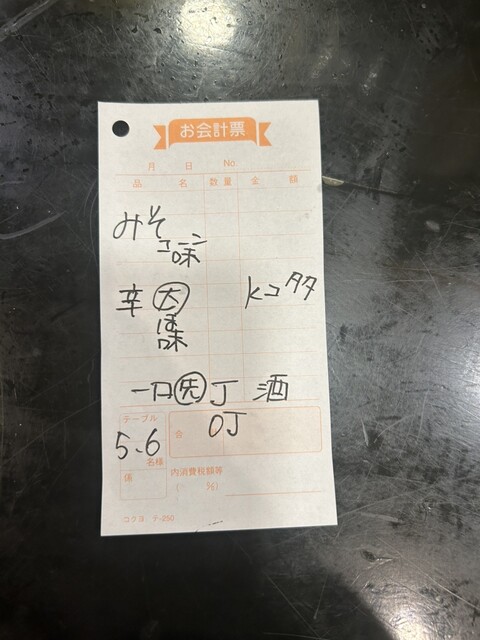 お会計票
月 日 No
品 名 数量 金 額
みそ
コーン
味
辛 大 Kコ タタ
ほ
味
一口 先 J 酒
OJ
テーブル
5、6
名様
係
会
内消費税額等
%)
コクヨ テ-250